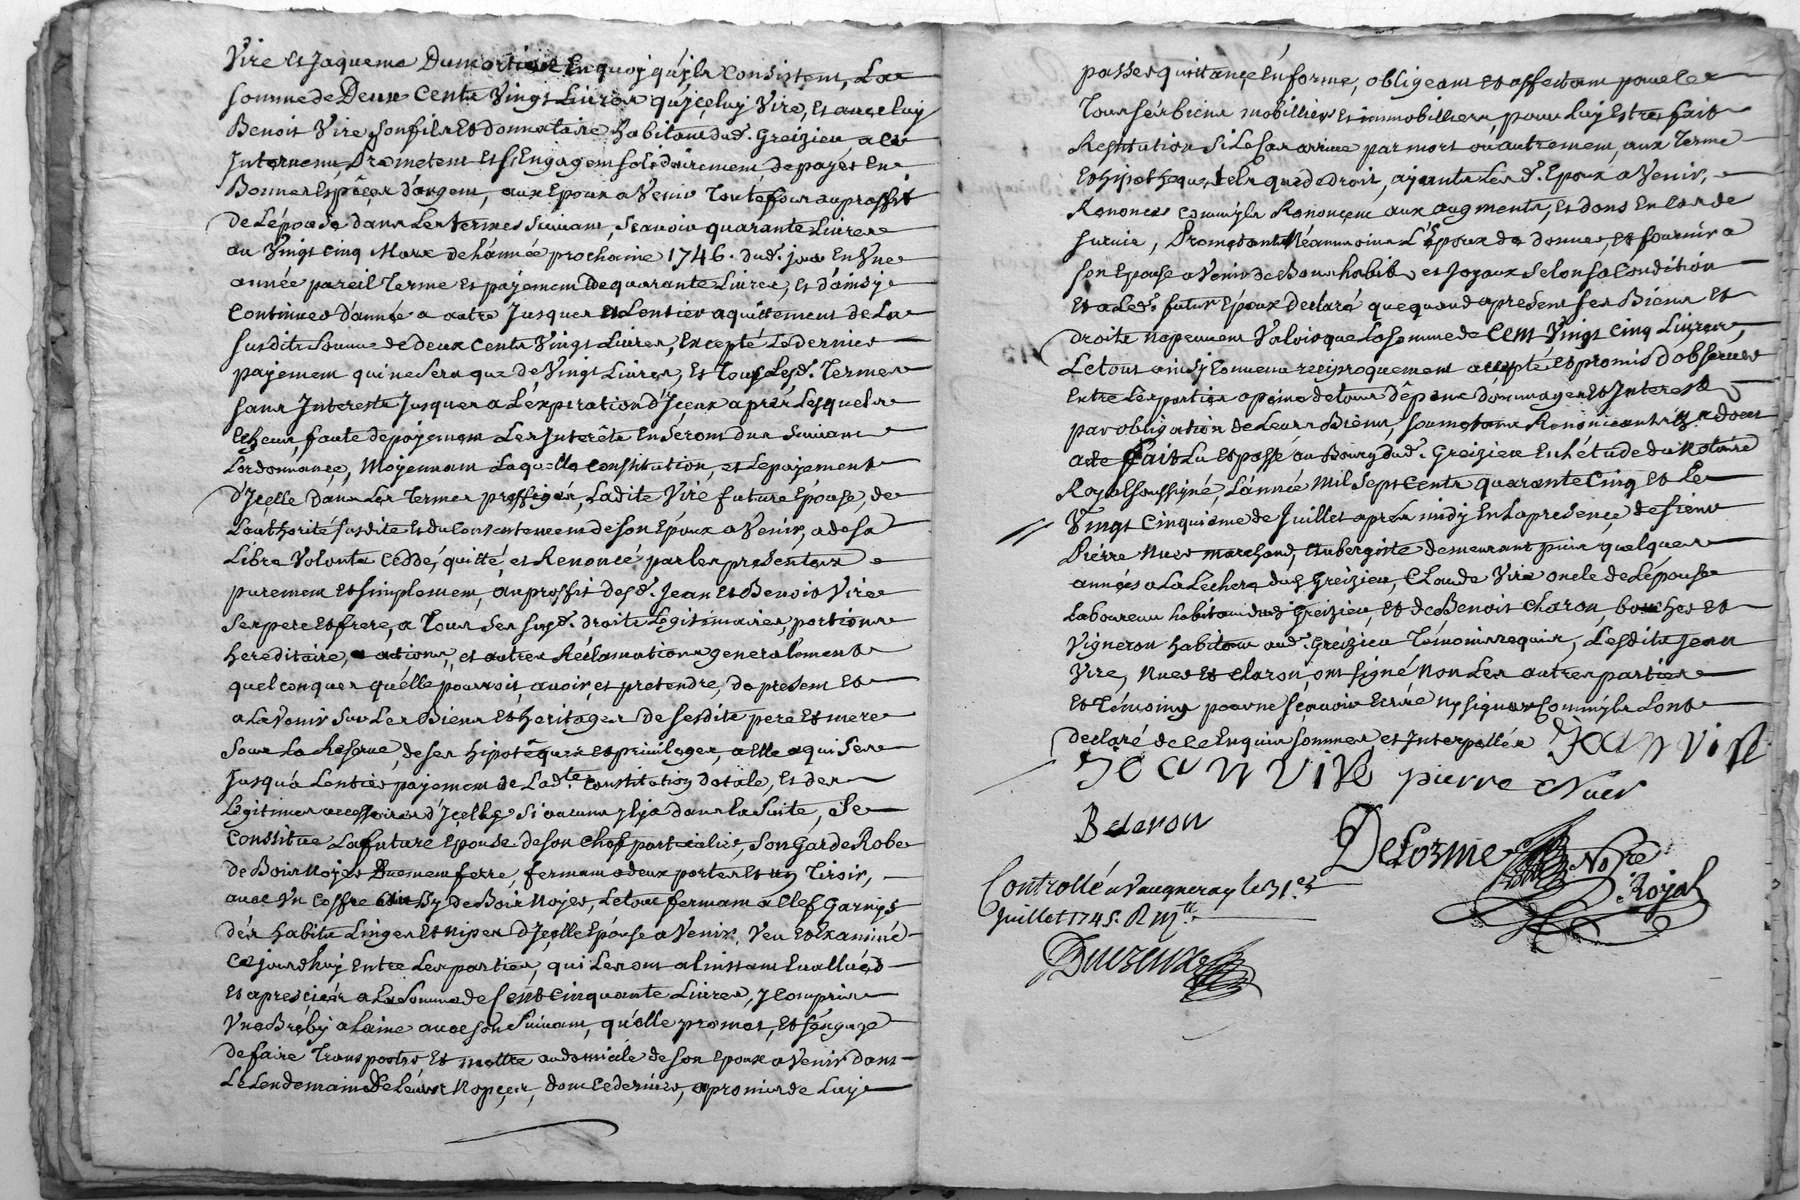 Vire et Jaqueme Dumortier En quoy qu'jls Consistent, La
somme de Deux Cents Vingt Livres qu'jceluy Vire, et auec luy
Benoit Vire son fils et donnataire habitant dud. Greizieu, a ce
Interuenu, Prometent et s'Engagent solidairement, de payer En
Bonnes Espêces d'argent, aux Epoux a Venir Toutefois au proffit
de L'épouse dans Les termes suiuant, scauoir quarante Liures
au Vingt Cinq Mars de L'année prochaine 1746. dud. jour En Vne
année pareil Terme et payement de quarante Liures, et d'ainsy
Continuer d'année a autre Jusques a L'entier aquittement de La
susdite Somme de Deux Cents Vingt Liures, Excepté Le dernier
payement qui ne sera que de Vingt Liures, Et Tous Lesd. Termes
sans Interests Jusques a L'éxpiration d'Jceux aprés Lesquels
Echeus, faute de payement Les Interêts En seront dus suiuant
L'ordonnance, Moyennant Laquelle Constitution, et Le payement
d'Jcelle Dans Les Termes preffigés, Ladite Vire future Epouse, de
L'authorité susdite et du Consentement de son Epoux a Venir, a de sa
Libre Volonté Ceddé, quitté, et Renoncé par Les presentes
purement et simplement, au proffit desd. Jean et Benoit Vire
ses pere et frere, a Tous ses susd. droits Legitimaires, portions
hereditaire, actions, et autres Réclamations generalement
quelconques qu'elle pourroit, auoir, et pretendre, de present et
a L'avenir sur Les Biens et heritages De sesdits pere et mere
Sous La Reserue, de ses hipotêques et priuileges, a Elle aquises
Jusqu'a L'entier payement de Lad.te Constitution dotale, Et des
Legitimes accessoires d'Jcelle Si aucuns Jl y a dans La Suite, Se
Constitue La future Epouse de son Chef particulier, Son GardeRobe
de Bois Noyer Duement ferré, fermant a deux portes Et un Tiroir,
auec Vn Coffre aussy de Bois Noyer, Le tout fermant a Clef Garnys
des habits Linges Et nipes d'Jcelle Epouse a Venir, Veu et Examiné
Ce jourd'huy Entre Les parties, qui Les ont a L'instant Euallués
Et apreciér a La Somme de Cent Cinquante Liures, y Compris
Vne Breby a Laine auec son Suiuant, qu'elle promet, Et s'engage
de faire Transporter, Et mettre au domicile de son Epoux a Venir dans
Le Lendemain de Leurs Nopces, dont Ce dernier, a promis de Luy
passer quittançe En forme, obligeant et affectant pour Ce
Tous ses biens mobilliers et immobilliers, pour Luy Estre fait
Restitution si Le Cas arriue par mort ou autrement, aux Terme
Et hipotheque, tels que de droit, ayants Lesd. Epoux a Venir,
Renoncé Comm'jls Renoncent aux augments, et dons En Cas de
suruie, Prometant Néanmoins L'Epoux de donner, et fournir a
son Epouse a Venir de Bons habits et Joyaux selon sa Condition
Et a Led. futur Epoux Declaré que quand a present ses Biens Et
droits ne peuuent Valoir que La somme de Cent Vingt Cinq Liures,
Le tout ainsy Conuenu reciproquement accepté et promis d'obseruer
Entre Les parties a peine de tous dépens dommages Et Interest
par obligation de Leurs Biens, soumetants Renonceants &.a dont
acte fait Lu Et passé au Bourg dud. Greizieu En L'étude du Notaire
Royal soussigné, L'année Mil Sept Cents quarante Cinq Et Le
Vingt Cinquieme de Juillet aprés midy En La presence de sieur
Pierre Nuer marchand, Aubergiste demeurant puis quelques
années a La Lechere dud. Greizieu, Claude Vire oncle de L'épouse
Laboureur habitant dud. Greizieu, Et de Benoit Charon, boucher Et
Vigneron habitant aud. Greizieu Témoins requis, Lesdits Jean
Vire, Nuer Et Charon, ont signé Non Les autres parties
Et Témoins pour ne sçauoir Ecrire ny signer Comm'jls L'ont
declaré de Ce Enquis Sommes et Interpellés Jean Vire
Jean Vire pierre Nuer
B charon
Delorme No.re
Royal
Controllé a Vaugneray le 31e
Juillet 1745. R